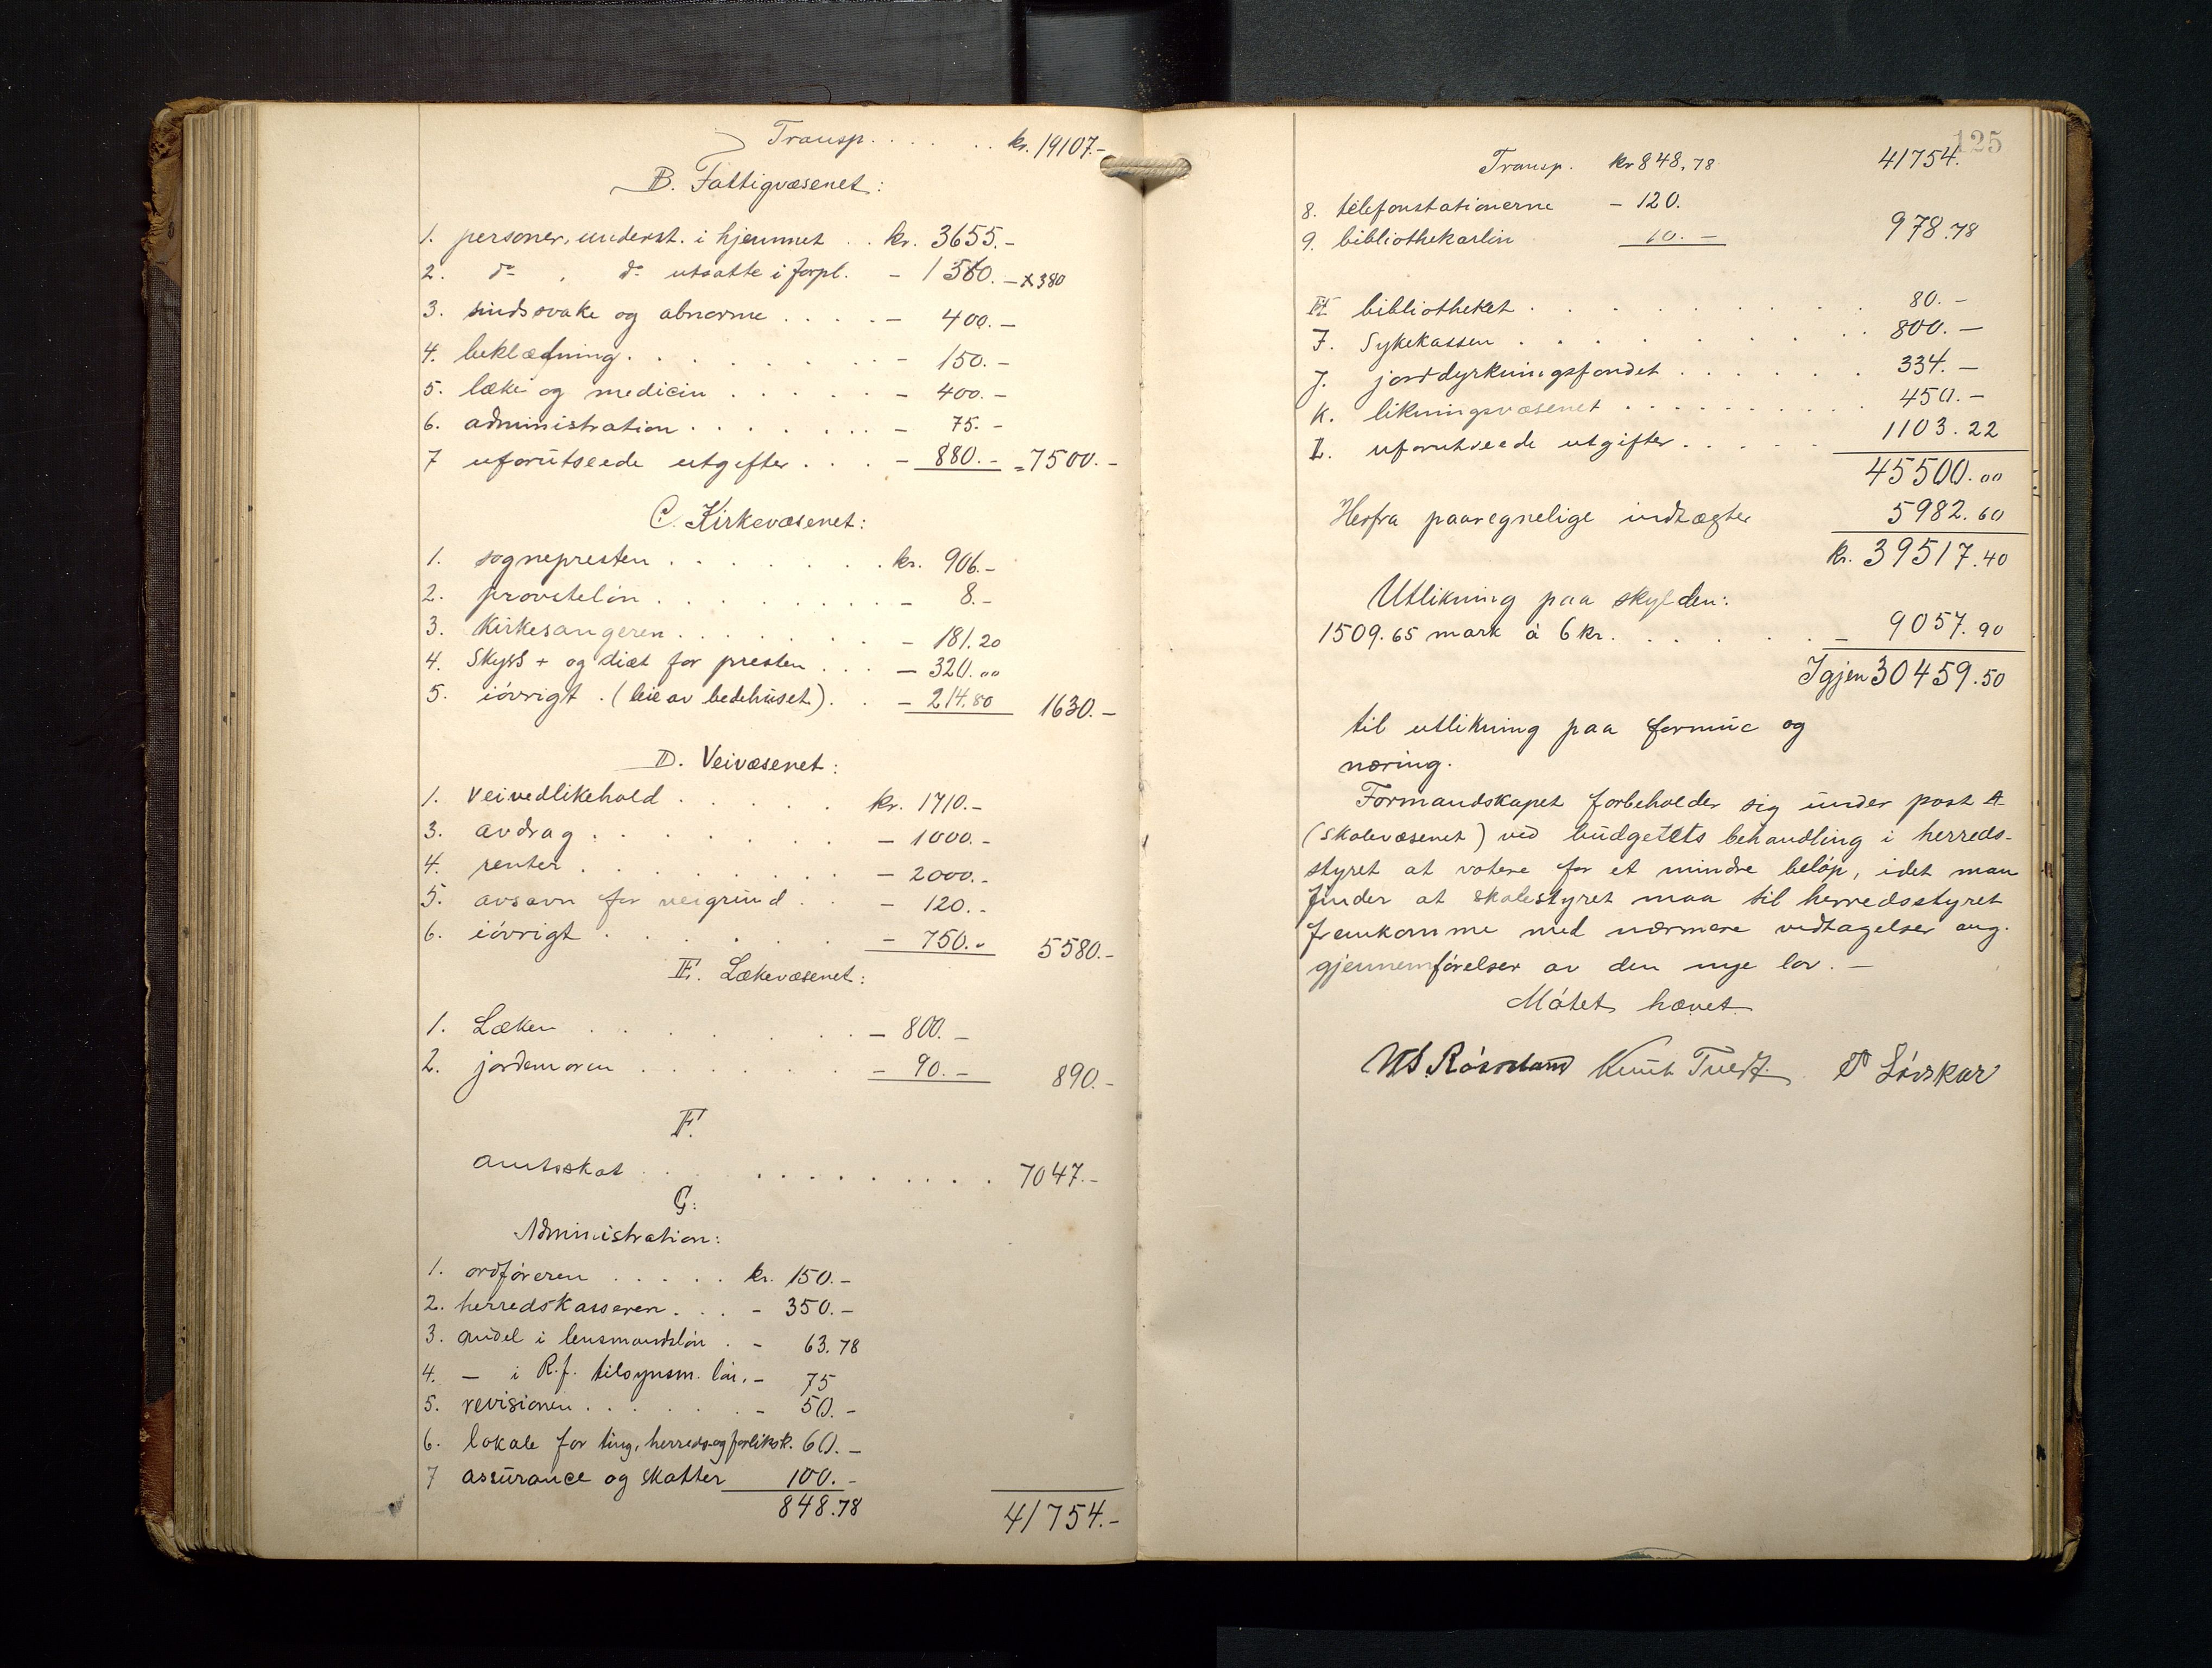 Transp. . . . . . . kr. 19107.-
B. Fattigvæsenet:
1. personer, underst. i hjemmet . . kr. 3655.-
2. do , do utsatte i forpl. - 1560. - + 380
3. sindssvake og abnorme . . . . - 400.-
4. beklædning . . . . . . . . - 150.-
5. læke og medicin . . . . . - 400.-
6. administration . . . . . . . - 75.-
7 uforutseede utgifter . . . - 880.- = 7500.-
C. Kirkevæsenet:
1. sognepresten . . . . . . . . kr. 906.-
2. provstelön . . . . . . . . . - 8.-
3. Kirkesangeren . . . . . . . - 181.20
4. Skyss + og diæt for presten . . . - 320.00
5. iövrigt . (leie av bedehuset) . . - 214.80 1630.-
D. Veivæsenet:
1. veivedlikehold . . . . . kr. 1710.-
3. avdrag . . . . . . . - 1000.-
4. renter . . . . . . . . . - 2000.-
5. avsavn for veigrund . . - 120.-
6. iövrigt . . . . . . - 750.- 5580.-
E. Lækevæsenet:
1. Læken . . . . . . - 800.-
2. jordemoren . . . . . . - 90.- 890.-
F.
amtsskat . . . . . . . . . . 7047.-
G:
Administration:
1. ordföreren . . . . . kr. 150.-
2. herredskasseren . . . - 350.-
3. andel i lensmandslön . - 63.78
4. - i R.f. tilsynsm. lön. - 75
5. revisionen . . . . . . . - 50.-
6. lokale for ting, herreds og forliksk. 60.-
7 assurance og skatter 100.-
848.78 41754.-
125
Transp. kr 848,78 41754.
8. telefonstationerne - 120.
9. bibliothekarlön 10.- 978.78
H bibliotheket . . . . . . . . . 80.-
I. Sykekassen . . . . . . . . . 800.-
J. jorddyrkningsfondet . . . . . . 334.-
K. likningsvæsenet . . . . . . . . . . 450.-
L. uforutseede utgifter . . . . . 1103.22
45500.00
Herfra paaregnelige indtægter 5982.60
kr. 39517.40
Utlikning paa skylden:
1509.65 mark à 6 kr. . . . . . . - 9057.90
Igjen 30459.50
til utlikning paa formue og
næring.
Formandskapet forbeholder sig under post A
(skolevæsenet) ved budgettets behandling i herreds-
styret at votere for et mindre belöp, idet man
finder at skolestyret maa til herredsstyret
fremkomme med nærmere vedtagelser ang.
gjennemförelser av den nye lov. -
Mötet hævet
Knut Tvedt. Lövskar